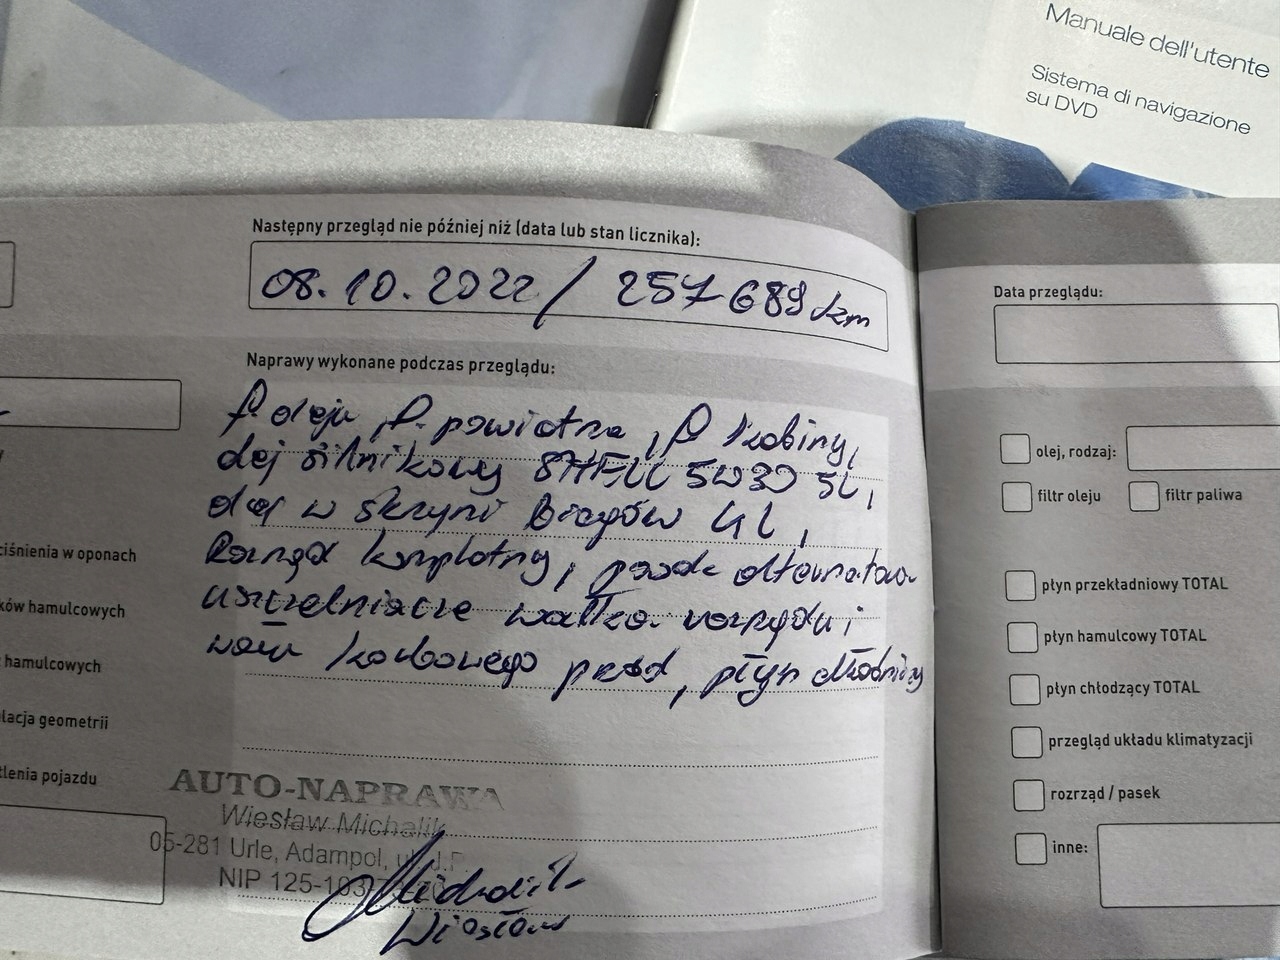 Manuale dell'utente
Sistema di navigazione
su DVD
Następny przegląd nie później niż (data lub stan licznika):
08.10.2022 / 257 689 km
Naprawy wykonane podczas przeglądu:
f. oleju, f. powietrza, f. kabiny,
olej silnikowy SHELL 5W30 5L,
olej w skrzyni biegów 4L,
Rozrząd kompletny, pasek alternatora
uszczelniacze wałka rozrządu i
wału korbowego przód, płyn chłodniczy
AUTO-NAPRAWA
Wiesław Michalik
05-281 Urle, Adampol, ul. J.P.
NIP 125-103-
Michalik
Wiesław
ciśnienia w oponach
ków hamulcowych
hamulcowych
lacja geometrii
tlenia pojazdu
Data przeglądu:
olej, rodzaj:
filtr oleju
filtr paliwa
płyn przekładniowy TOTAL
płyn hamulcowy TOTAL
płyn chłodzący TOTAL
przegląd układu klimatyzacji
rozrząd / pasek
inne: